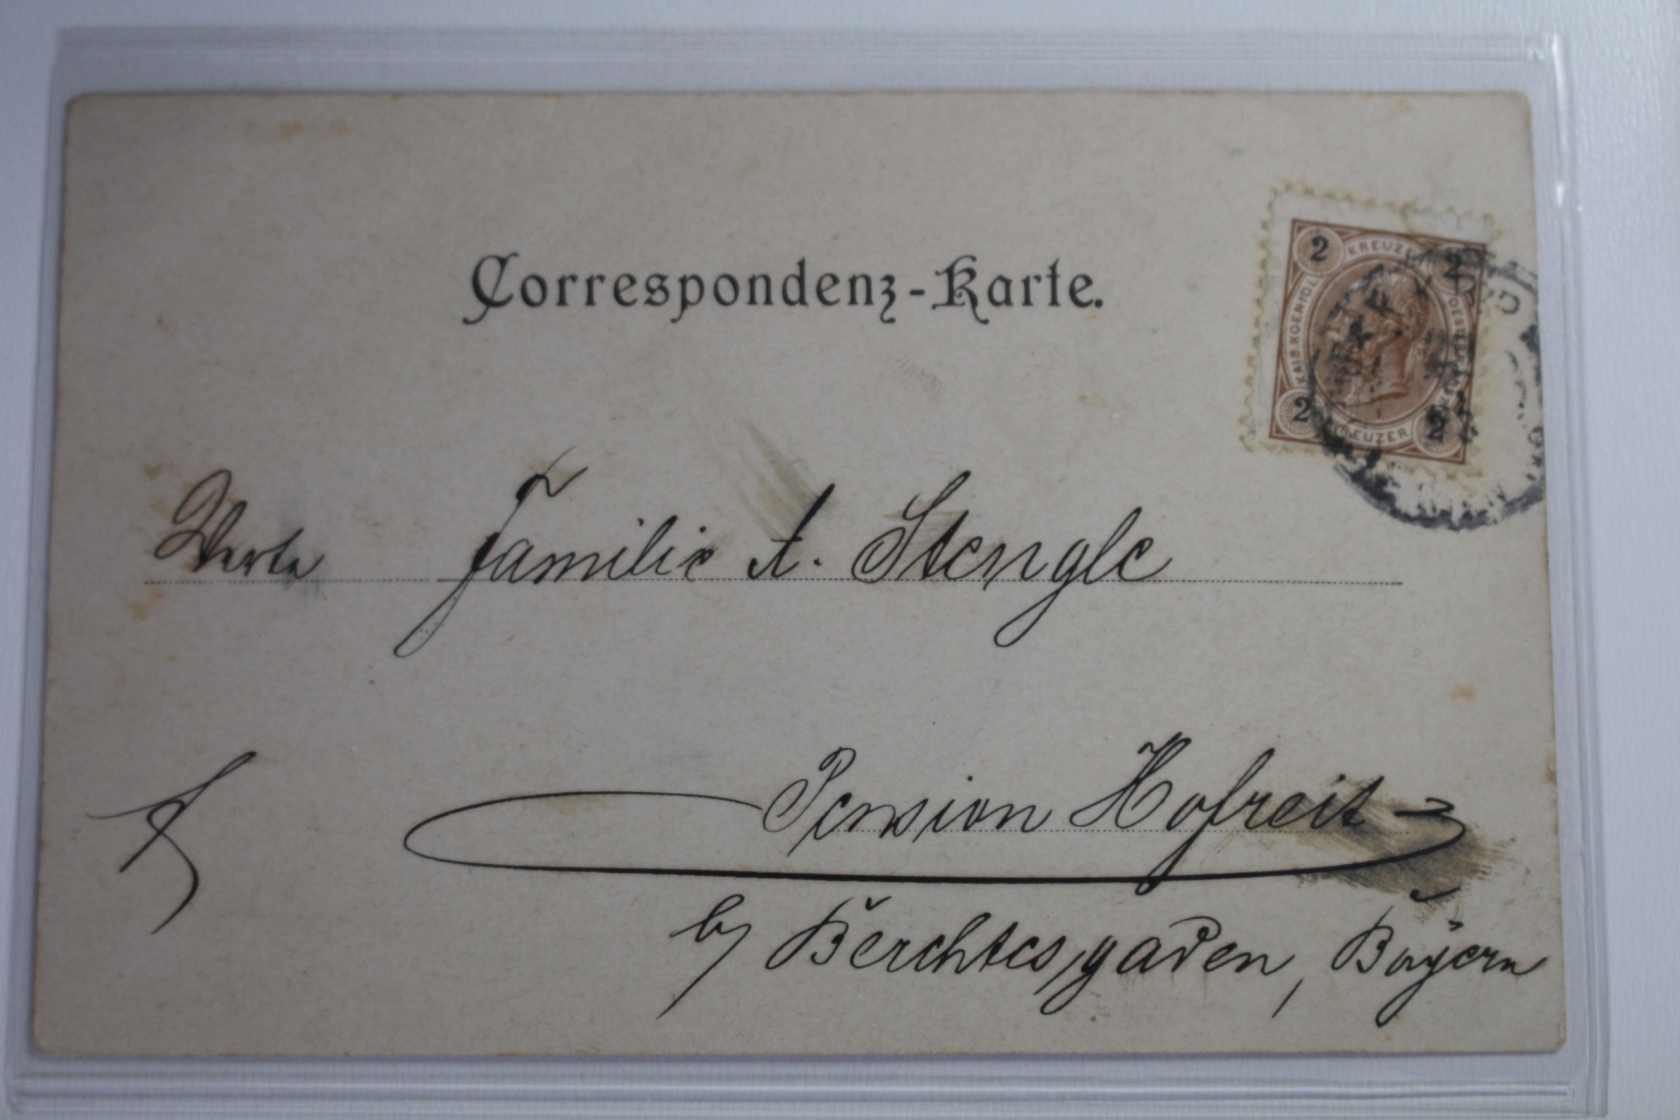 Correspondenz-Karte.
2 KREUZER 2
KAIS. KOENIGL.
2 KREUZER 2
Werte Familie A. Stengle
Pension Hofreit
b/ Berchtesgaden, Bayern